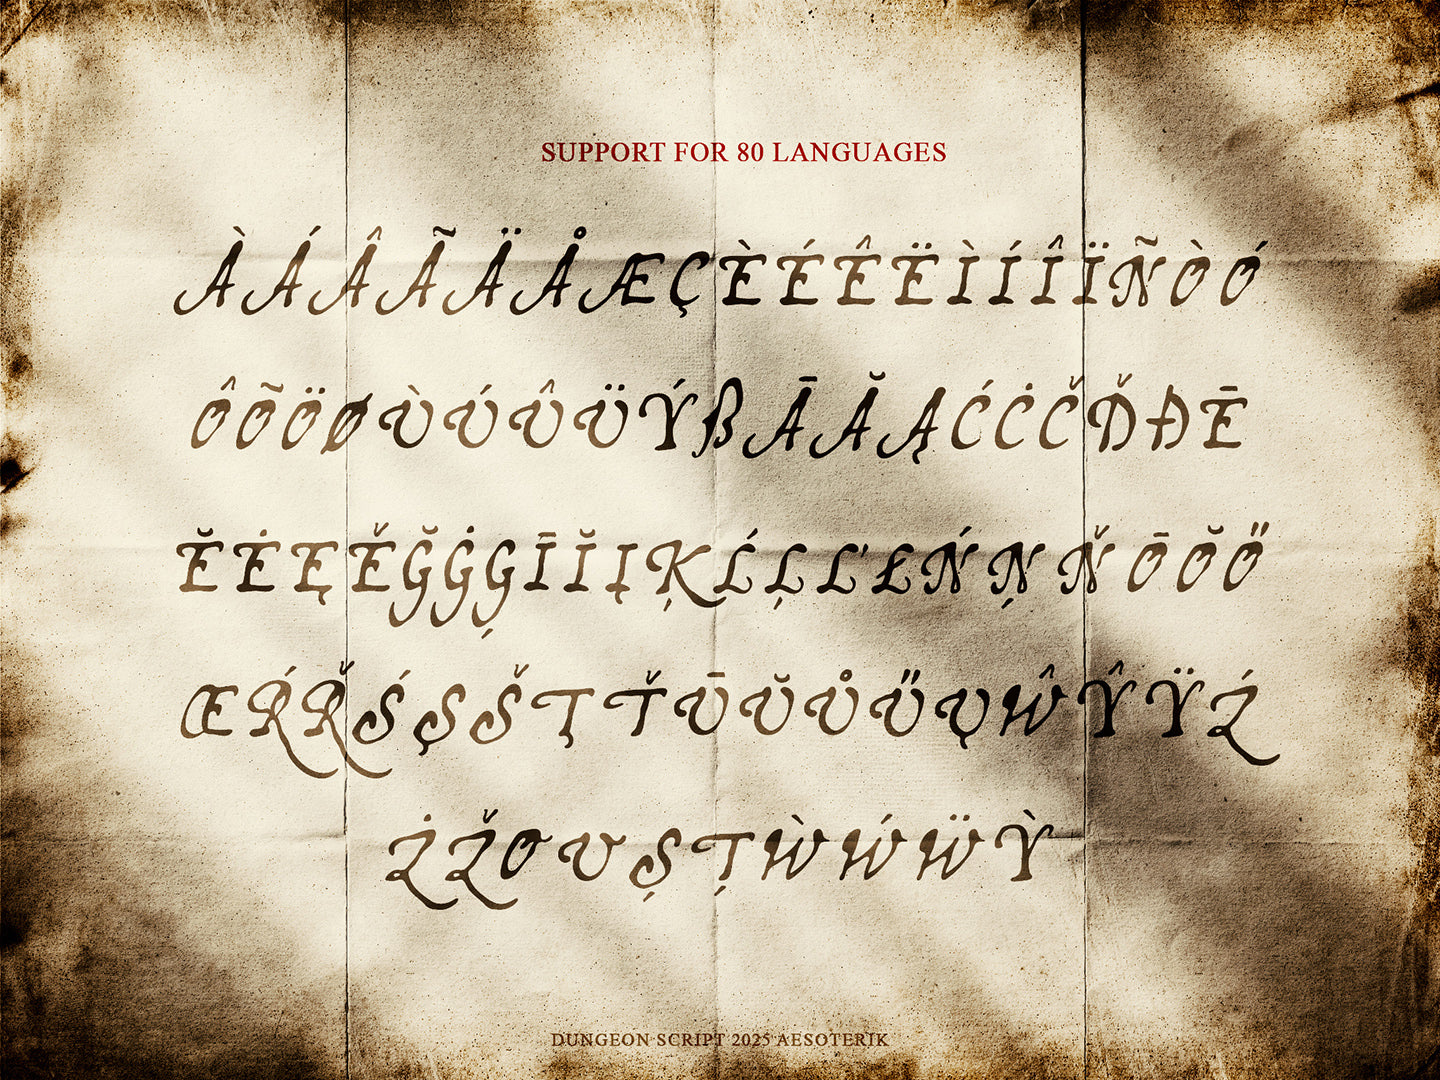 SUPPORT FOR 80 LANGUAGES
ÀÁÂÃÄÅÆÇÈÉÊËÌÍÎÏÑÒÓ
ÔÕÖØÙÚÛÜÝßĀĂĄĆĊČĎĐĒ
ĔĖĘĚĞĠĢĪĬĮĶĹĻĽŁŃŅŇŌŎŐ
ŒŔŘŚŞŠŢŤŪŬŮŰŲŴŶŸŹ
ŻŽƠƯȘȚẀẂẄỲ
DUNGEON SCRIPT 2025 AESOTERIK